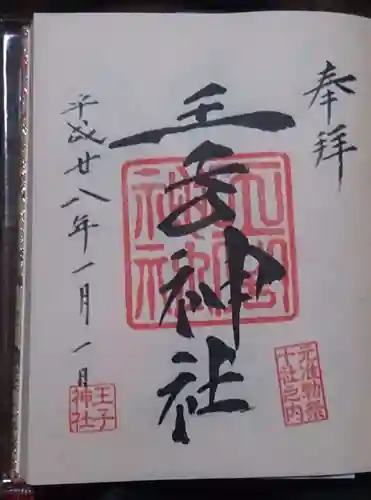 奉拝
王子神社
平成廿八年一月一日
王子神社
元准勅祭
十社之内